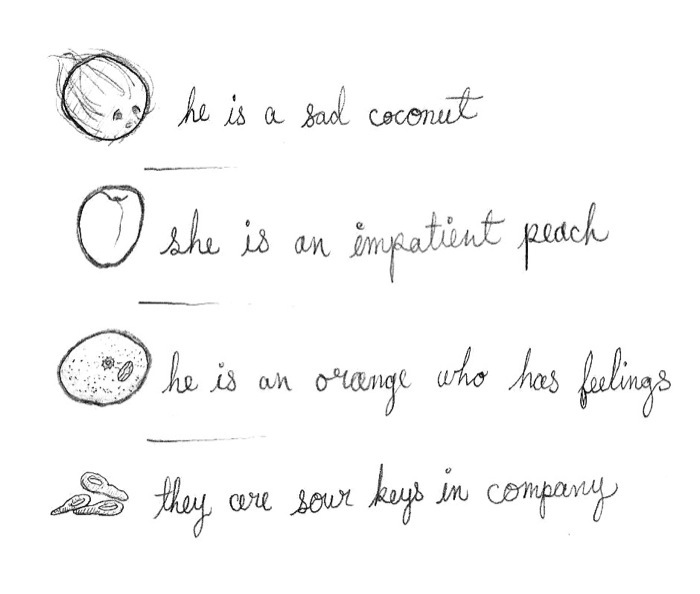 he is a sad coconut
she is an impatient peach
he is an orange who has feelings
they are sour keys in company